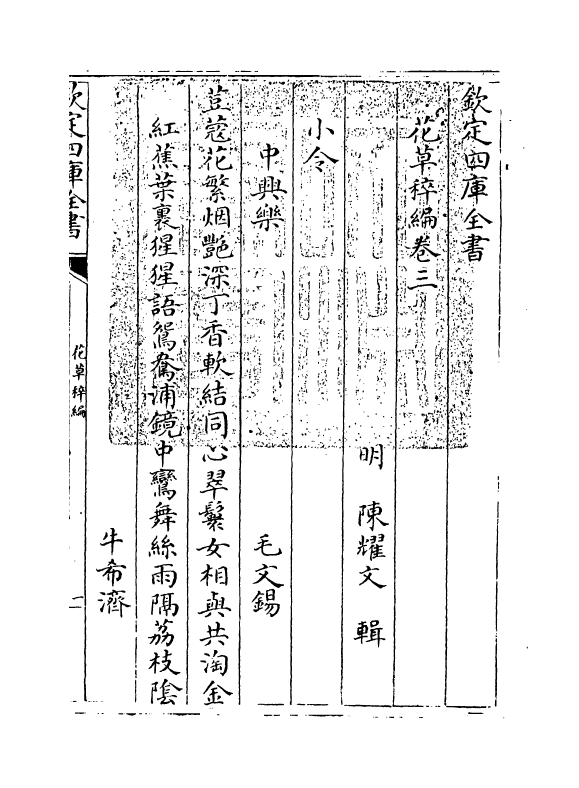 欽定四庫全書
花草稡編卷三
明 陳耀文 輯
小令
中興樂 毛文錫
荳蔻花繁烟艷深丁香軟結同心翠鬟女相與共淘金
紅蕉葉裏猩猩語鴛鴦浦鏡中鸞舞絲雨隔荔枝陰
牛希濟
欽定四庫全書
花草稡編